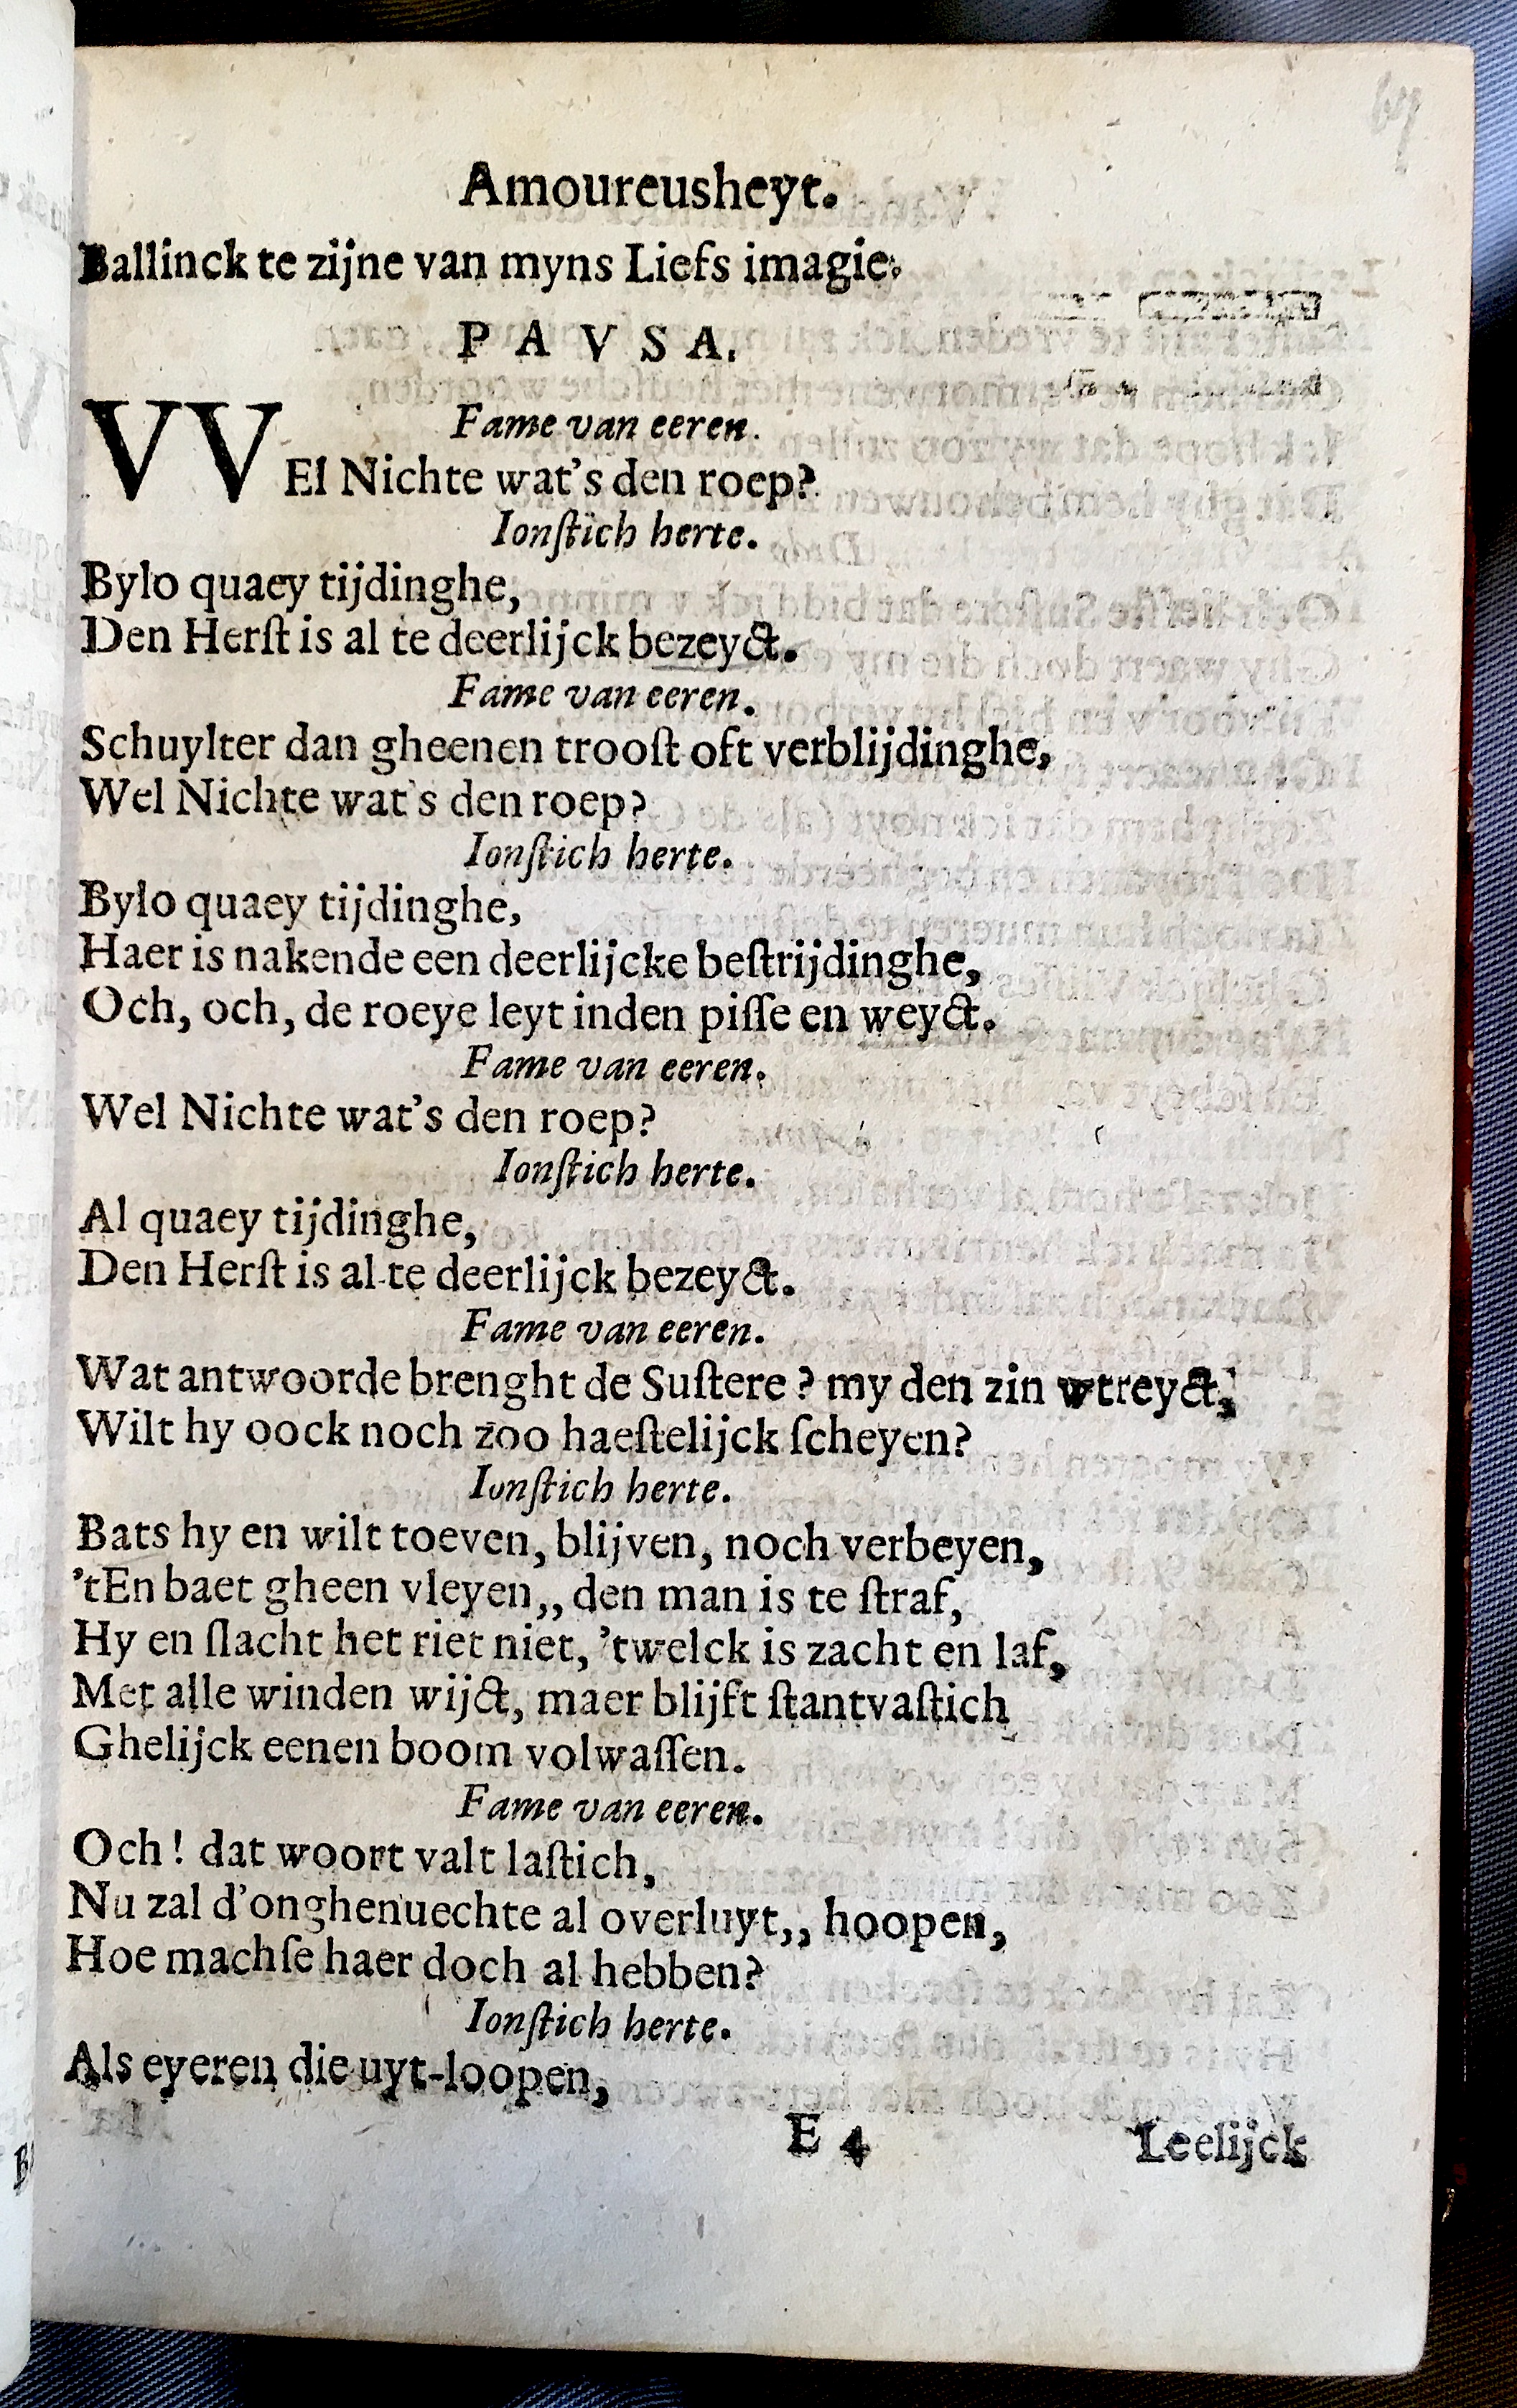 Amoureusheyt.
Ballinck te zijne van myns Liefs imagie.
P A V S A.
Fame van eeren.
VVEl Nichte wat's den roep?
Ionſtich herte.
Bylo quaey tijdinghe,
Den Herſt is al te deerlijck bezeyct.
Fame van eeren.
Schuylter dan gheenen trooſt oft verblijdinghe,
Wel Nichte wat's den roep?
Ionſtich herte.
Bylo quaey tijdinghe,
Haer is nakende een deerlijcke beſtrijdinghe,
Och, och, de roeye leyt inden piſſe en weyct.
Fame van eeren.
Wel Nichte wat's den roep?
Ionſtich herte.
Al quaey tijdinghe,
Den Herſt is al te deerlijck bezeyct.
Fame van eeren.
Wat antwoorde brenght de Suſtere ? my den zin wtreyct,
Wilt hy oock noch zoo haeſtelijck ſcheyen?
Ionſtich herte.
Bats hy en wilt toeven, blijven, noch verbeyen,
'tEn baet gheen vleyen,, den man is te ſtraf,
Hy en ſlacht het riet niet, 'twelck is zacht en laf,
Met alle winden wijct, maer blijft ſtantvaſtich
Ghelijck eenen boom volwaſſen.
Fame van eeren.
Och! dat woort valt laſtich,
Nu zal d'onghenuechte al overluyt,, hoopen,
Hoe machſe haer doch al hebben?
Ionſtich herte.
Als eyeren die uyt-loopen,
E 4 Leelijck